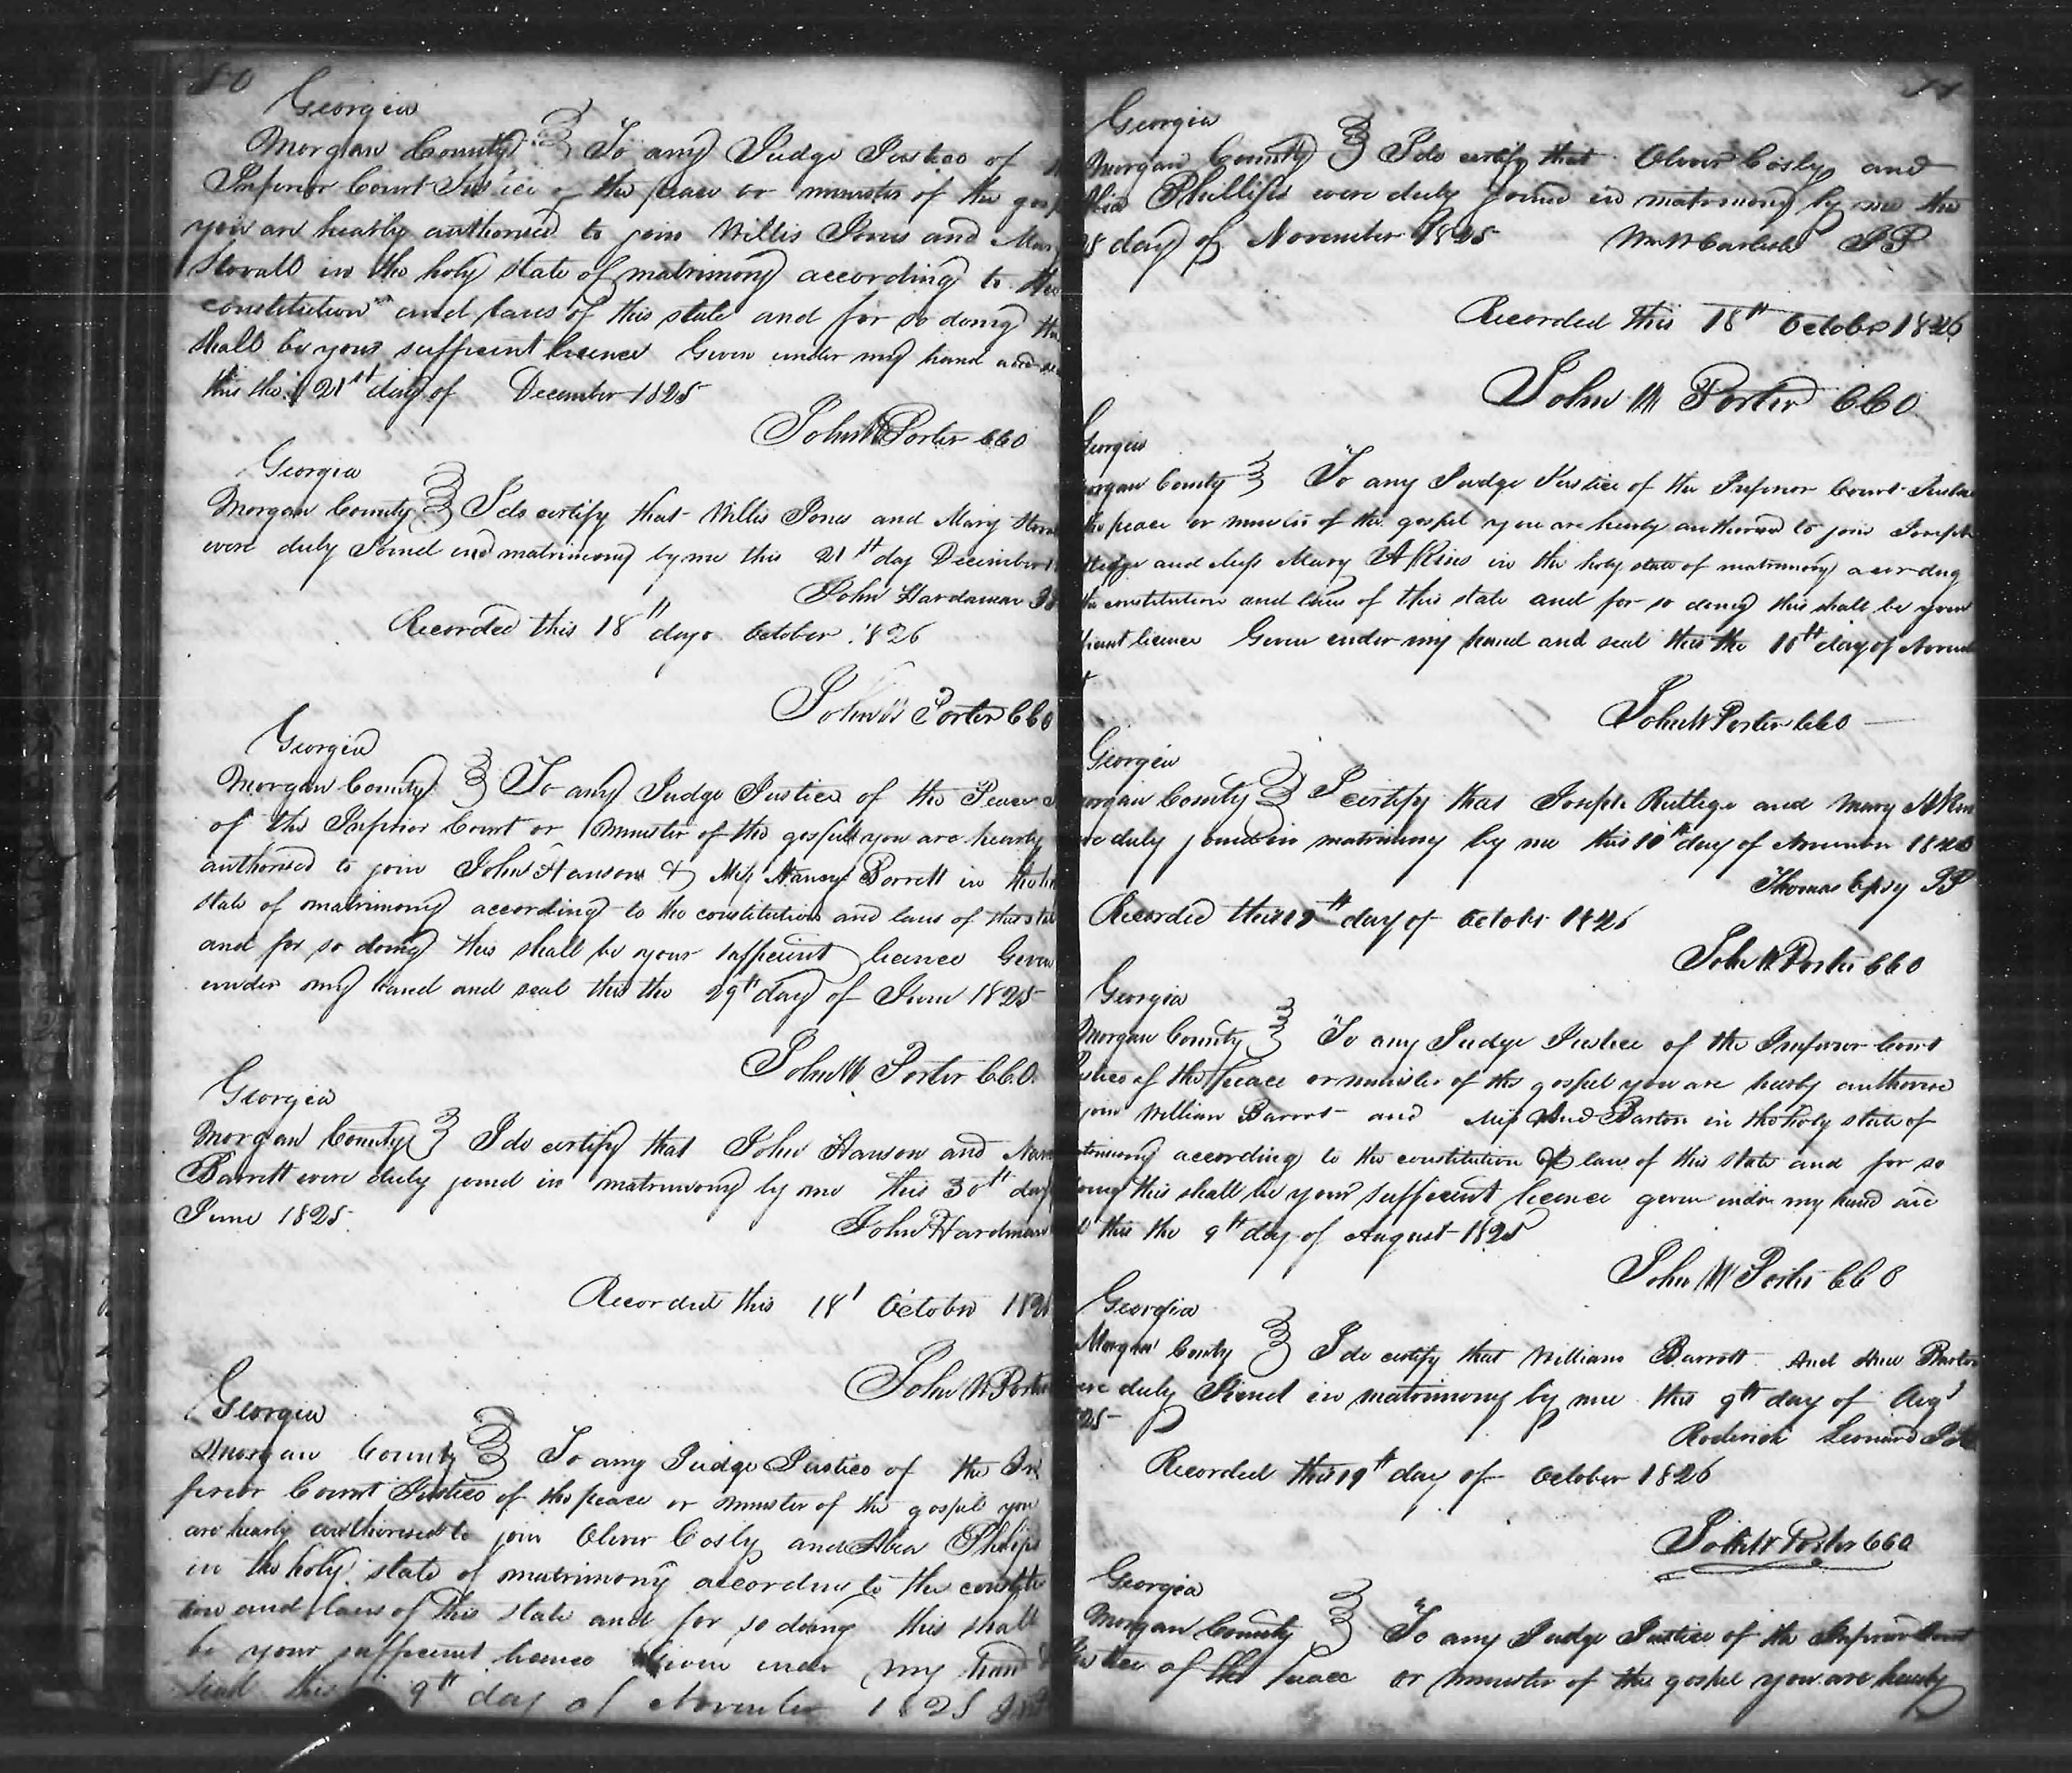 80
Georgia
Morgan County To any Judge Justice of
Inferior Court Justice of the peace or minister of the gosp
you are hearby authorised to join Willis Jones and Mary
Stovall in the holy state of matrimony according to the
constitution and laws of this state and for so doing this
shall be your sufficent licence Given under my hand and
this the 21st day of December 1825
John W Porter CCO
Georgia
Morgan County I do certify that Willis Jones and Mary
were duly Joined in matrimony by me this 21st day December
John Hardaman
Recorded this 18th day October 1826
John W Porter CCO
Georgia
Morgan County To any Judge Justice of the Peace
of the Inferior Court or minister of the gospel you are hearby
authorised to join John Hanson & Miss Nancy Borrett in
state of matrimony according to the constitution and laws of this state
and for so doing this shall be your sufficient licence Given
under my hand and seal this the 29th day of June 1825
John W Porter CCO
Georgia
Morgan County I do certify that John Hanson and
Barrett were duly joined in matrimony by me this 30th day
June 1825
John Hardman
Recorded this 18t October
John W Porter
Georgia
Morgan County To any Judge Justice of the In
ferior Court Justice of the peace or minister of the gospel you
are hearby authorised to join Oliver Cosly and Phelips
in the holy state of matrimony according to the constitu
tion and laws of this state and for so doing this shall
be your sufficient licence Given under my hand &
seal this 9th day of November 1825
Georgia
Morgan County I do certify that Oliver Cosly and
Phillips were duly joined in matrimony by me the
day of November 1825 Wm W Carlisle JP
Recorded this 18th October 1826
John W Porter CCO
Georgia
organ County To any Judge Justice of the Inferior Court Justice
the peace or minister of the gospel you are hearby authorised to join Joseph
ttlege and Miss Mary Akins in the holy state of matrimony acording
the constitution and laws of this state and for so doing this shall be your
ficient licence Given under my hand and seal this the 10th day of Novem
John W Porter CCO
Georgia
organ County I certify that Joseph Ruttlege and Mary Akins
re duly joined in matrimony by me this 10th day of
Thomas Espy JP
Recorded this 19th day of October 1826
John W Porter CCO
Georgia
Morgan County To any Judge Justice of the Inferior Court
ustice of the peace or minister of the gospel you are hereby authorise
join William Barrot and Miss Ann Barton in the holy state of
trimony according to the constitution & laws of this state and for so
doing this shall be your sufficient licence given under my hand and
this the 9th day of August 1825
John W Porter CCO
Georgia
Morgan County I do certify that William Barrott And Ann Barton
ere duly Joined in matrimony by me this 9th day of Augt
25
Roderick Leonard
Recorded this 19th day of October 1826
John W Porter CCO
Georgia
Morgan County To any Judge Justice of the Inferior Court
Justice of the peace or minister of the gospel you are hereby